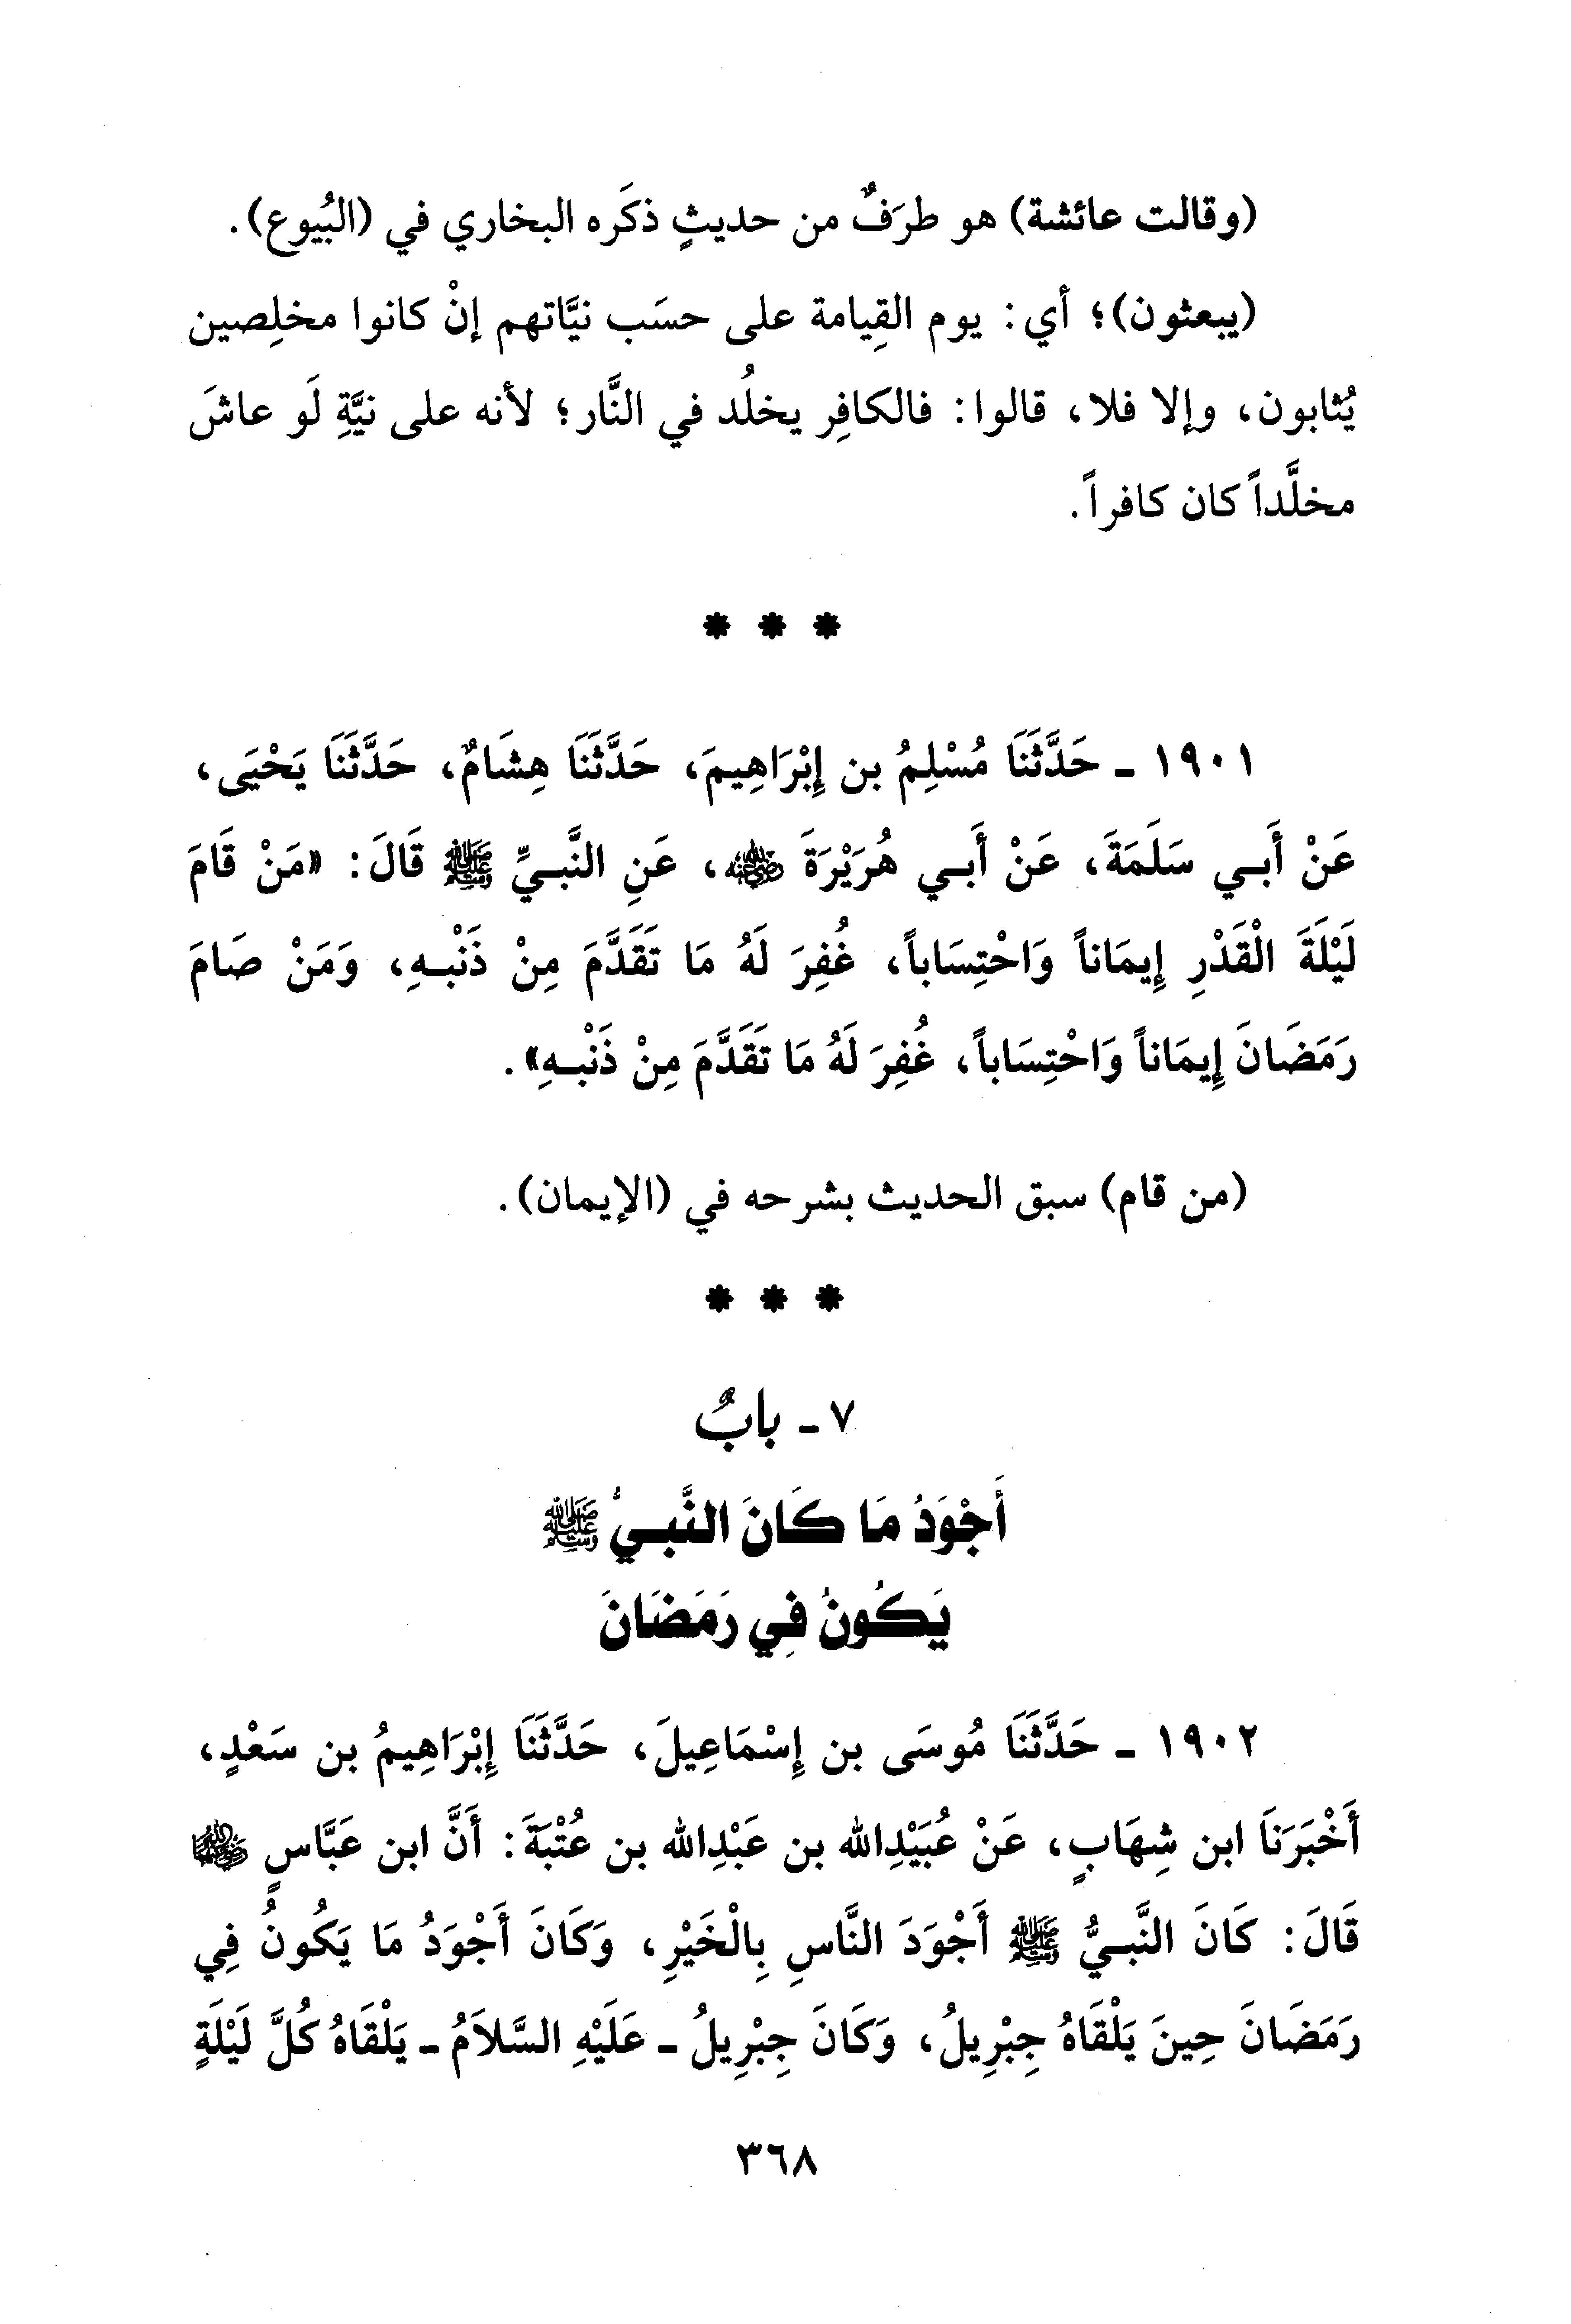 (وقالت عائشة) هو طرَفٌ من حديثٍ ذكَره البخاري في (البُيوع).
(يبعثون)؛ أي: يوم القِيامة على حسَب نيَّاتهم إنْ كانوا مخلِصين
يُثابون، وإلا فلا، قالوا: فالكافِر يخلُد في النَّار؛ لأنه على نيَّةِ لَو عاشَ
مخلَّداً كان كافراً.
* * *
١٩٠١ ـ حَدَّثَنَا مُسْلِمُ بن إِبْرَاهِيمَ، حَدَّثَنَا هِشَامٌ، حَدَّثَنَا يَحْيَى،
عَنْ أَبـي سَلَمَةَ، عَنْ أَبـي هُرَيْرَةَ رضي الله عنه، عَنِ النَّبـيِّ ﷺ قَالَ: «مَنْ قَامَ
لَيْلَةَ الْقَدْرِ إِيمَاناً وَاحْتِسَاباً، غُفِرَ لَهُ مَا تَقَدَّمَ مِنْ ذَنْبـهِ، وَمَنْ صَامَ
رَمَضَانَ إِيمَاناً وَاحْتِسَاباً، غُفِرَ لَهُ مَا تَقَدَّمَ مِنْ ذَنْبـهِ».
(من قام) سبق الحديث بشرحه في (الإيمان).
* * *
٧ ـ بابٌ
أَجْوَدُ مَا كَانَ النَّبـيُّ ﷺ
يَكُونُ فِي رَمَضَانَ
١٩٠٢ ـ حَدَّثَنَا مُوسَى بن إِسْمَاعِيلَ، حَدَّثَنَا إِبْرَاهِيمُ بن سَعْدٍ،
أَخْبَرَنَا ابن شِهَابٍ، عَنْ عُبَيْدِالله بن عَبْدِالله بن عُتْبَةَ: أَنَّ ابن عَبَّاسٍ رضي الله عنهما
قَالَ: كَانَ النَّبـيُّ ﷺ أَجْوَدَ النَّاسِ بِالْخَيْرِ، وَكَانَ أَجْوَدُ مَا يَكُونُ فِي
رَمَضَانَ حِينَ يَلْقَاهُ جِبْرِيلُ، وَكَانَ جِبْرِيلُ ـ عَلَيْهِ السَّلاَمُ ـ يَلْقَاهُ كُلَّ لَيْلَةٍ
٣٦٨